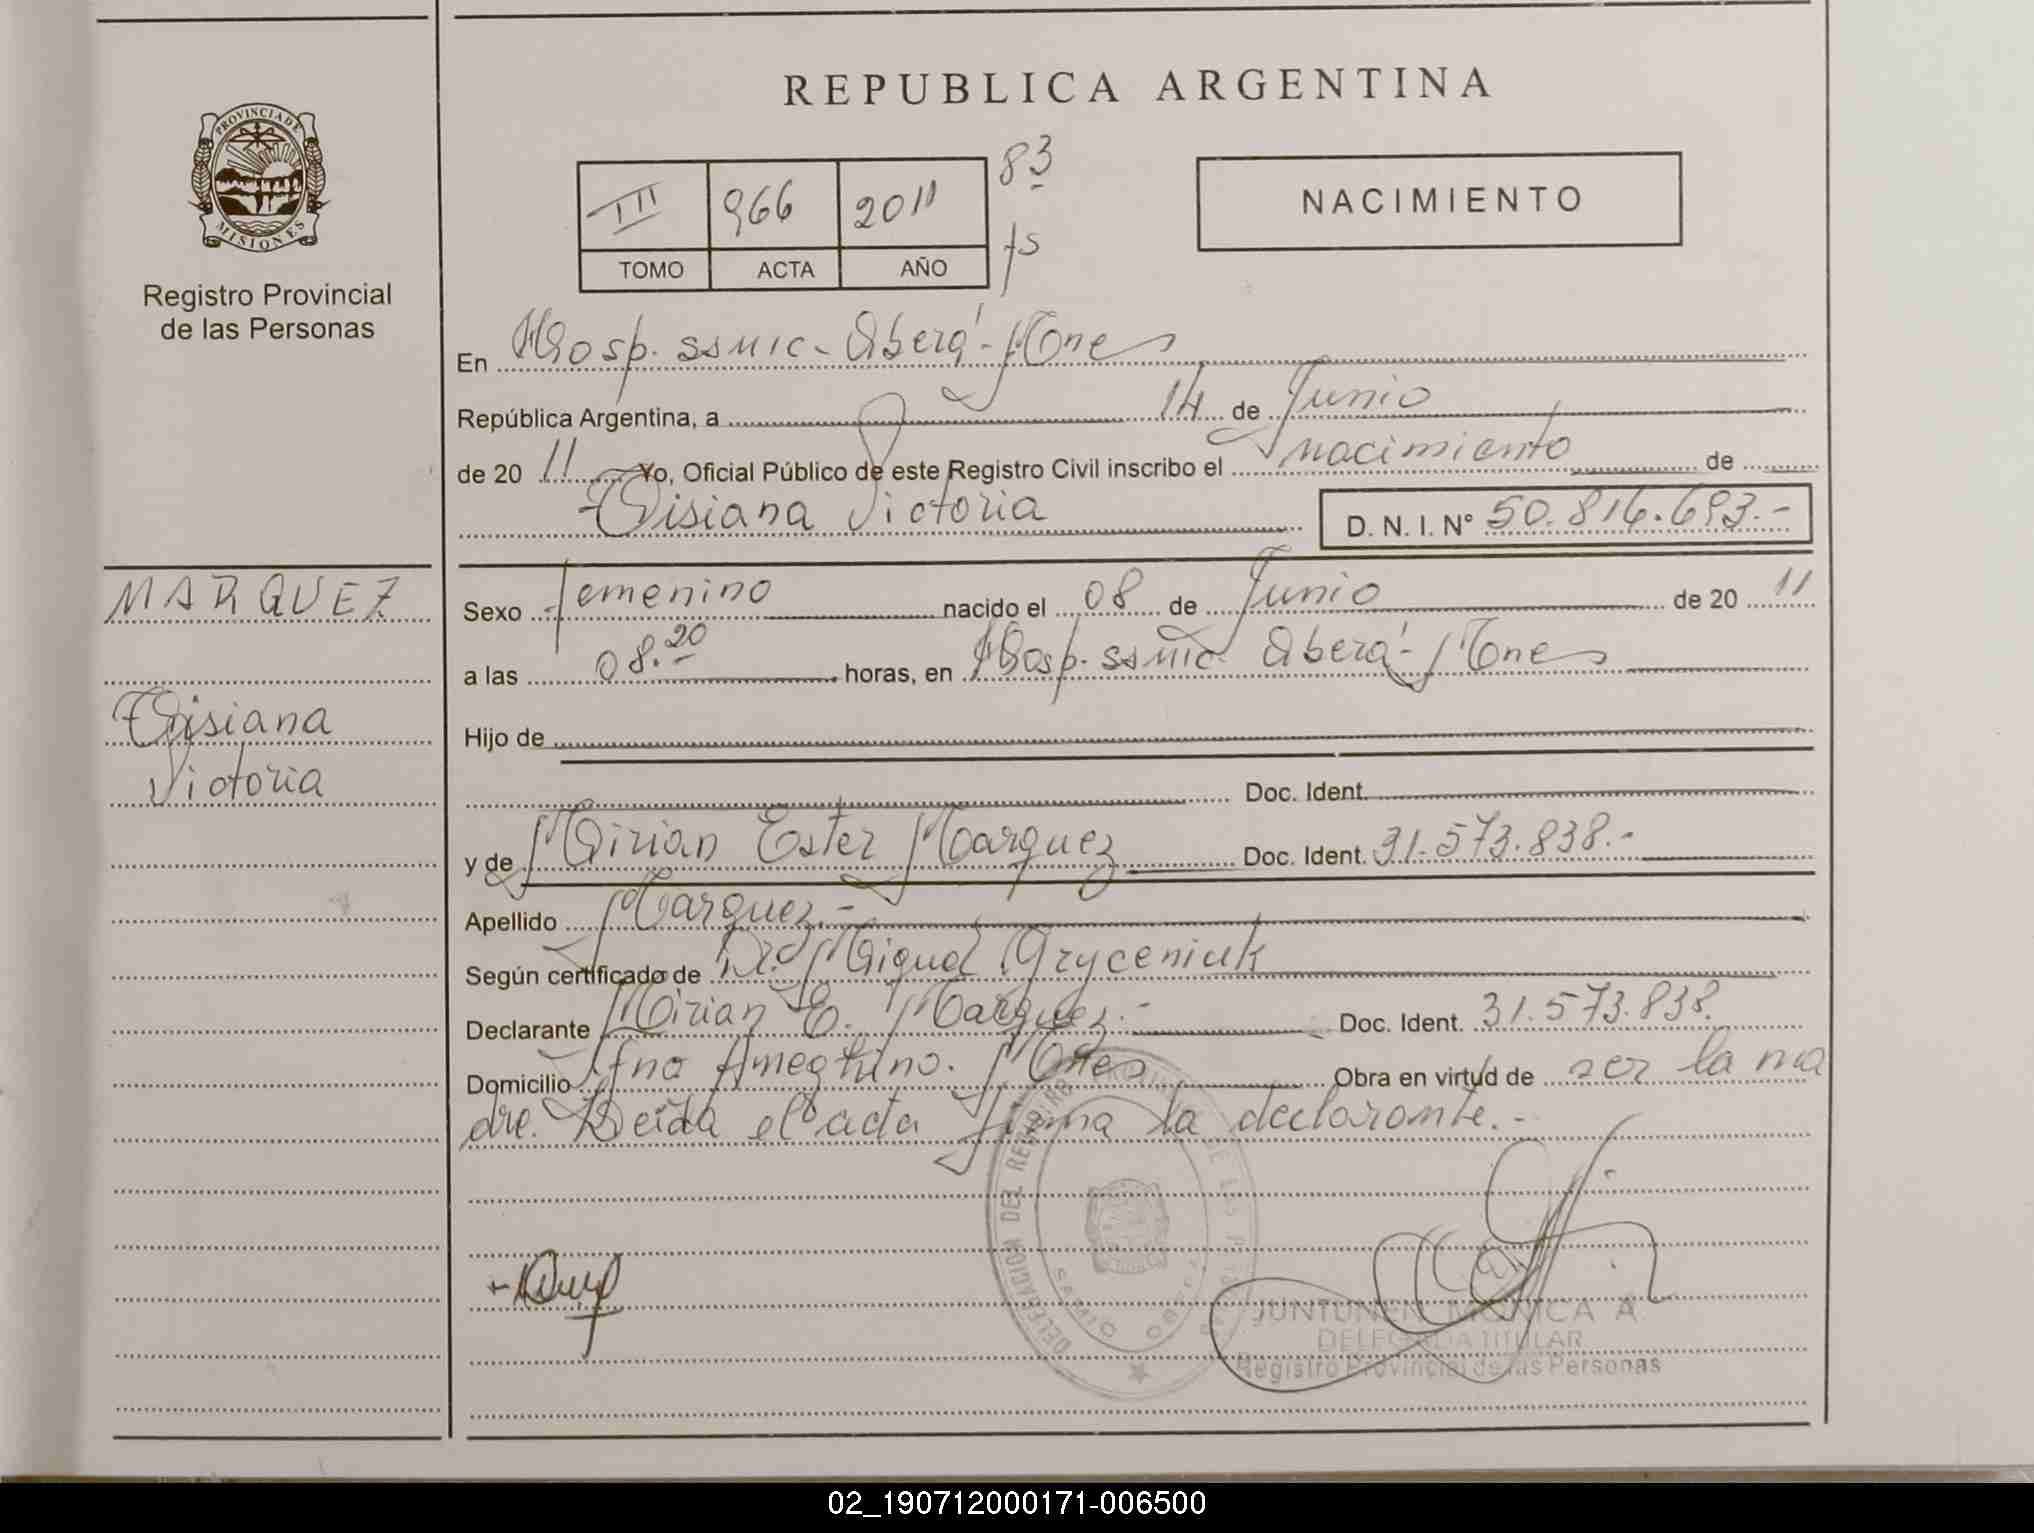 REPUBLICA ARGENTINA
PROVINCIA DE
MISIONES
Registro Provincial
de las Personas
III 966 2011 83
TOMO ACTA AÑO fs
NACIMIENTO
En Hosp. ssmic - Oberá - Mnes
República Argentina, a 14 de Junio
de 20 11 Yo, Oficial Público de este Registro Civil inscribo el nacimiento de
Tisiana Victoria D. N. I. N° 50.816.693.-
MARQUEZ
Tisiana
Victoria
Sexo femenino nacido el 08 de Junio de 20 11
a las 08.20 horas, en Hosp. ssmic - Oberá - Mnes
Hijo de
Doc. Ident.
y de Mirian Ester Marquez Doc. Ident. 31.573.838.-
Apellido Marquez.-
Según certificado de Dr. Miguel Gryceniuk
Declarante Mirian E. Marquez.- Doc. Ident. 31.573.838.
Domicilio Fno Ameghino. Mnes Obra en virtud de ser la ma
dre. Leída el acta firma la declarante.-
DELEGACION DEL REGISTRO DE LAS
JUNTUNEN MONICA A
DELEGADA TITULAR
Registro Provincial de las Personas
02_190712000171-006500